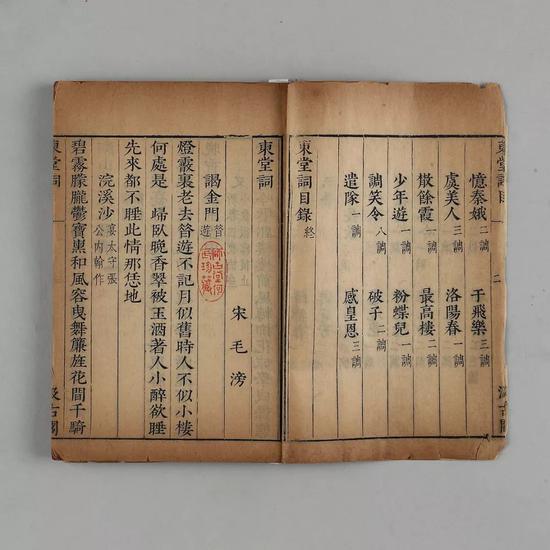 東堂詞目 二
憶秦娥二調 于飛樂三調
虞美人三調 洛陽春一調
散餘霞一調 最高樓二調
少年遊一調 粉蝶兒一調
調笑令八調 破子二調
遣隊一調 感皇恩三調
東堂詞目錄終
汲古閣
東堂詞
宋毛滂
謁金門昔遊
燈霰裏老去昔遊不記月似舊時人不似小樓
何處是 歸臥晚香翠被玉酒著人小醉欲睡
先來都不睡此情那恁地
浣溪沙
公內翰作
碧霧朦朧鬱寶熏和風容曳舞簾旌花間千騎
東堂詞
汲古閣